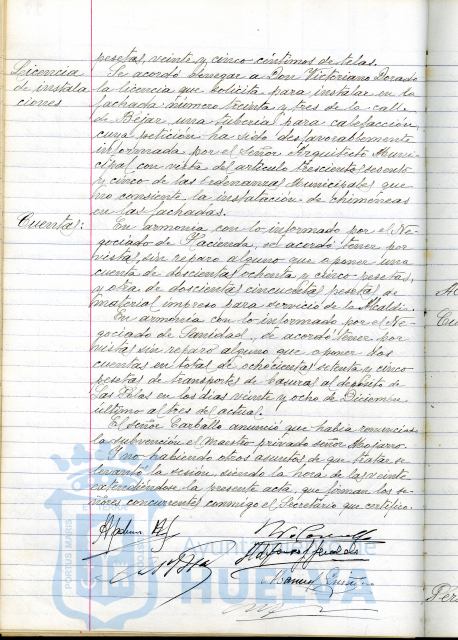 pesetas, veinte y cinco céntimos de telas.
Licencia de instalaciones
Se acordó denegar a Don Victoriano Dorado
la licencia que solicita para instalar en la
fachada número treinta y tres de la calle
de Béjar una tubería para calefacción,
cuya petición ha sido desfavorablemente
informada por el Señor Arquitecto Muni-
cipal con vista del artículo trescientos sesenta
y cinco de las Ordenanzas Municipales que
no consiente la instalación de chimeneas
en las fachadas.
Cuentas:
En armonía con lo informado por el Ne-
gociado de Hacienda, se acordó tener por
vistas, sin reparo alguno que oponer una
cuenta de doscientas ochenta y cinco pesetas,
y otra de doscientas cincuenta pesetas de
material impreso para servicio de la Alcaldía.
En armonía con lo informado por el Ne-
gociado de Sanidad, se acordó tener por
vistas sin reparo alguno que oponer dos
cuentas en total de ochocientas setenta y cinco
pesetas de transportes de basuras al depósito de
Las Islas en los días veinte y ocho de Diciembre
último al tres del actual.
El Señor Carballo anunció que había renunciado
la subvención el Maestro privado señor
Y no habiendo otros asuntos de que tratar se
levantó la sesión, siendo la hora de las veinte
extendiéndose la presente acta, que firman los se-
ñores concurrentes conmigo el Secretario que certifico.
Manuel
Ayuntamiento de
HUELVA
PORTUS MARIS
Cu
Per